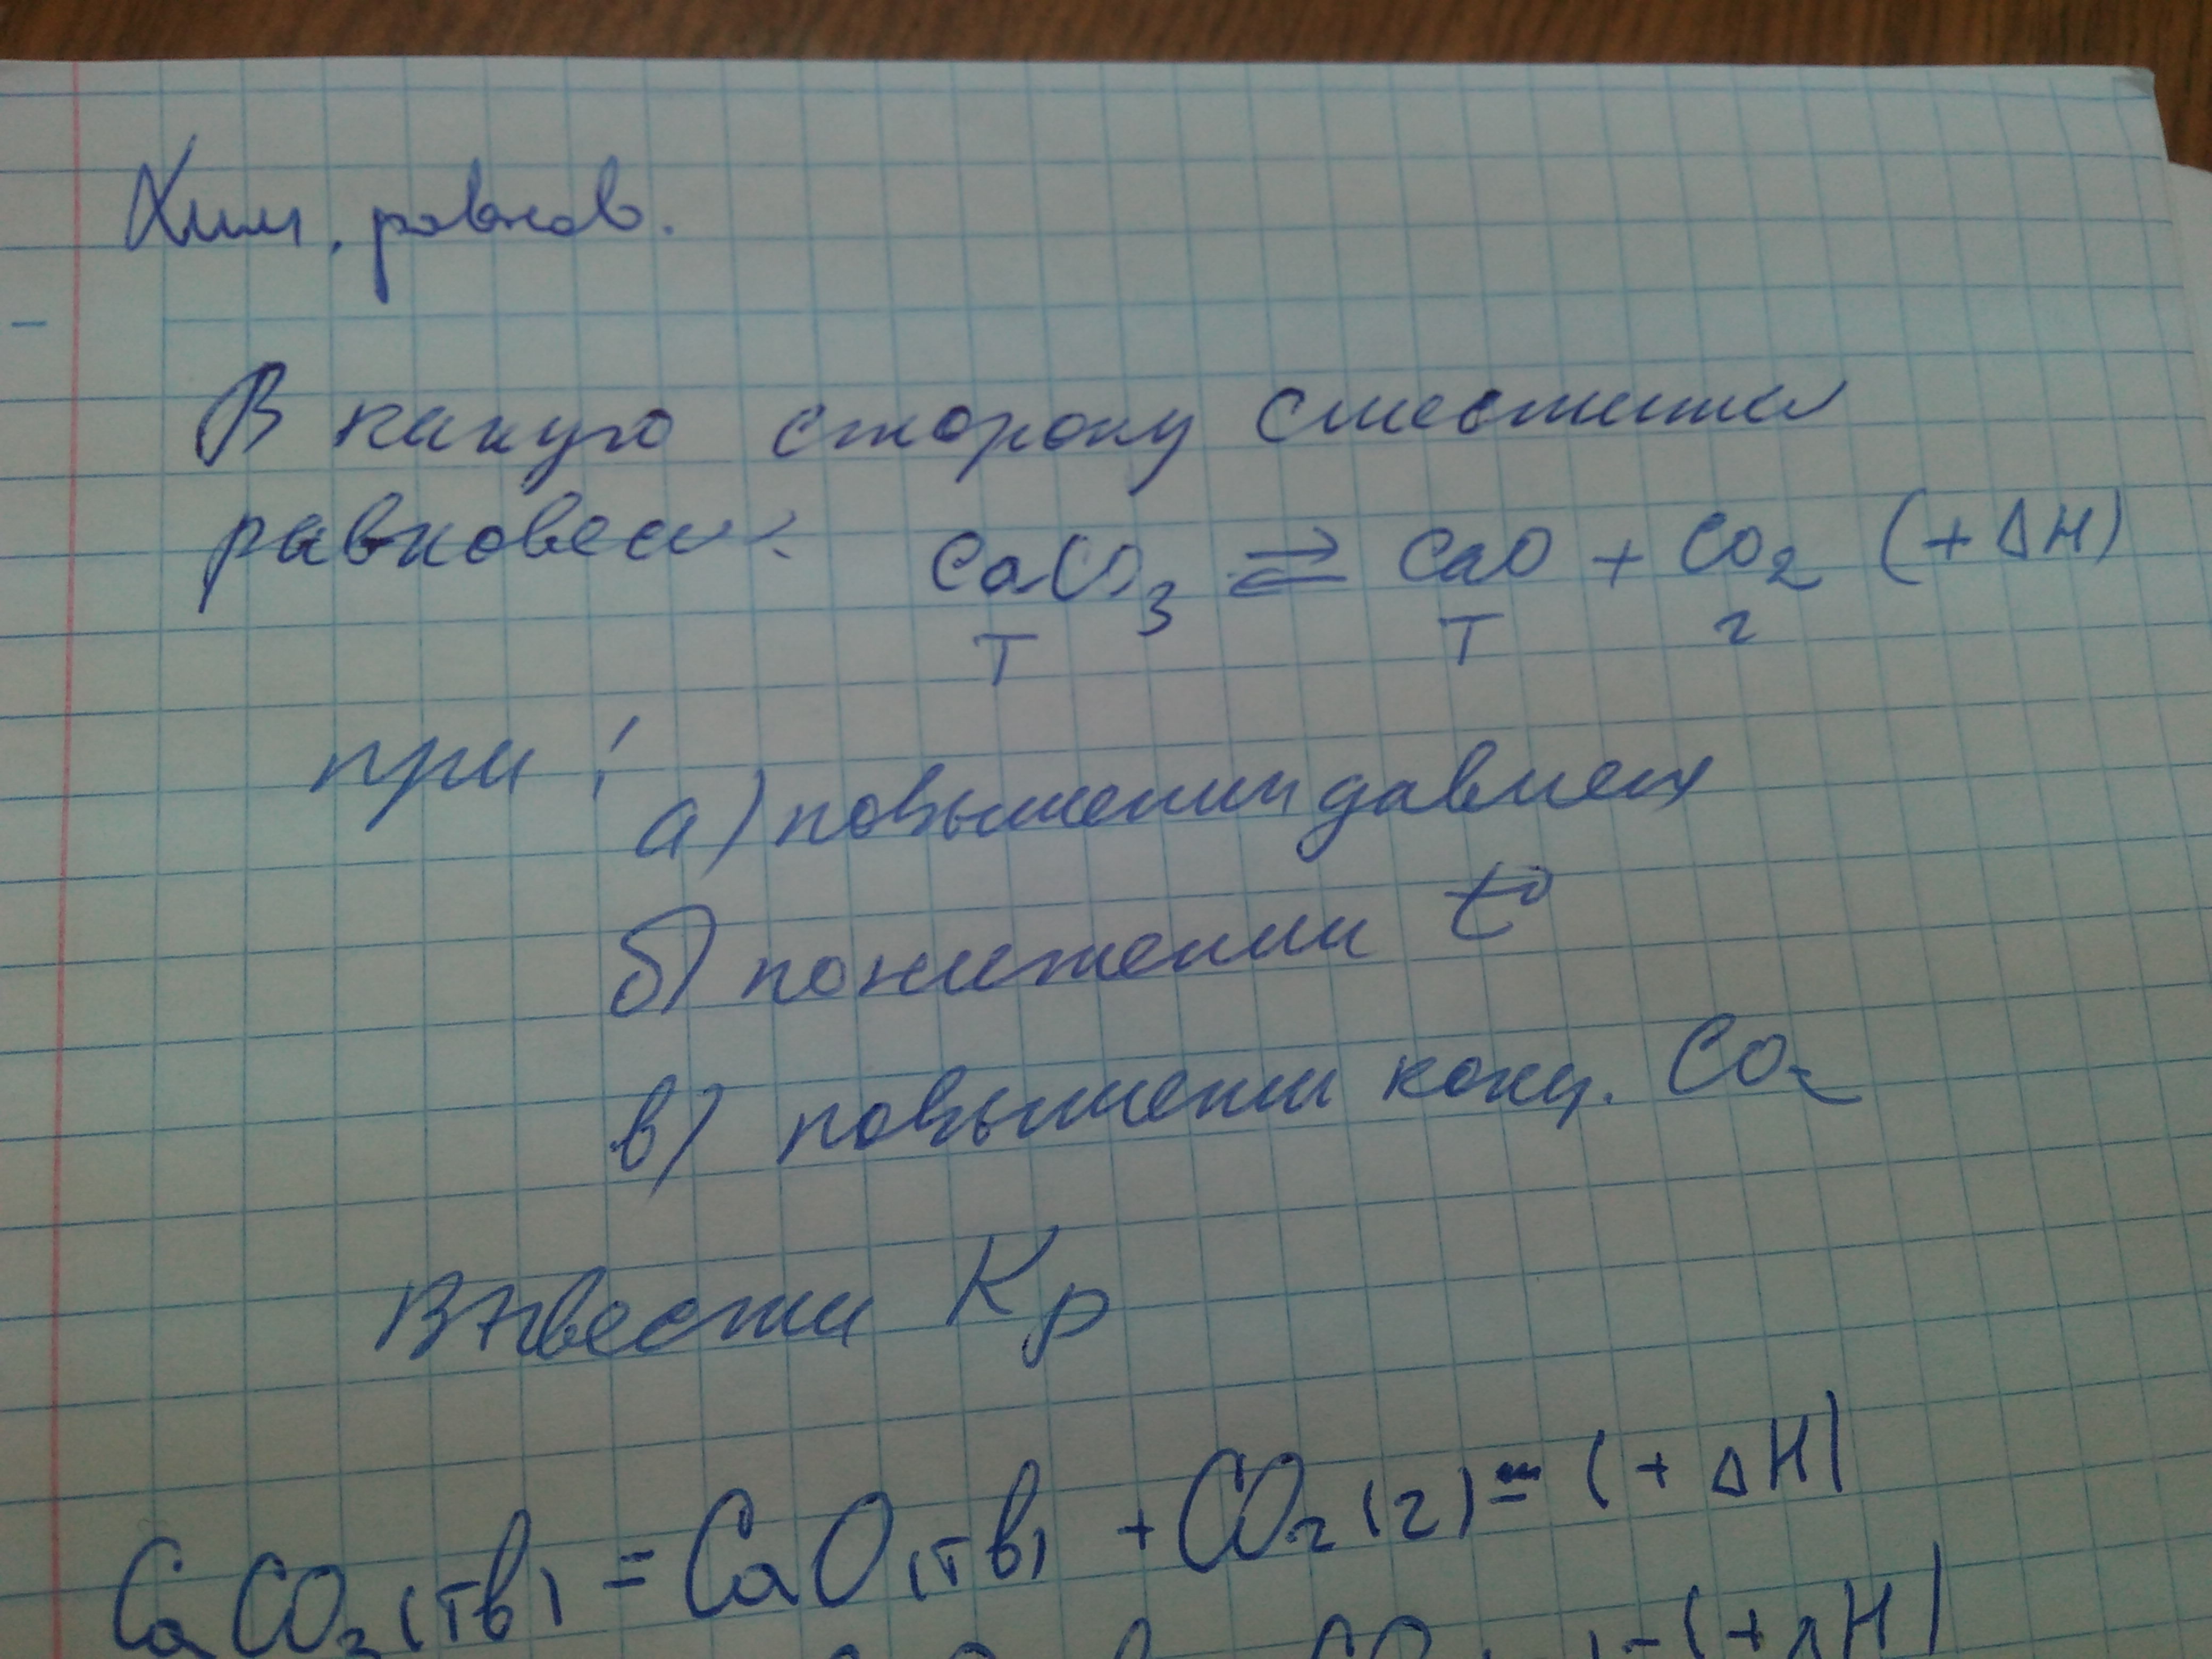 Хим. равнов.
В какую сторону сместится
равновесие: CaCO₃ ⇌ CaO + CO₂ (+ΔH)
т т г
при:
а) повышении давлен
б) понижении t°
в) повышении конц. CO₂
Вывести Kp
CaCO₃(тв) = CaO(тв) + CO₂(г) = (+ΔH)
(+ΔH)